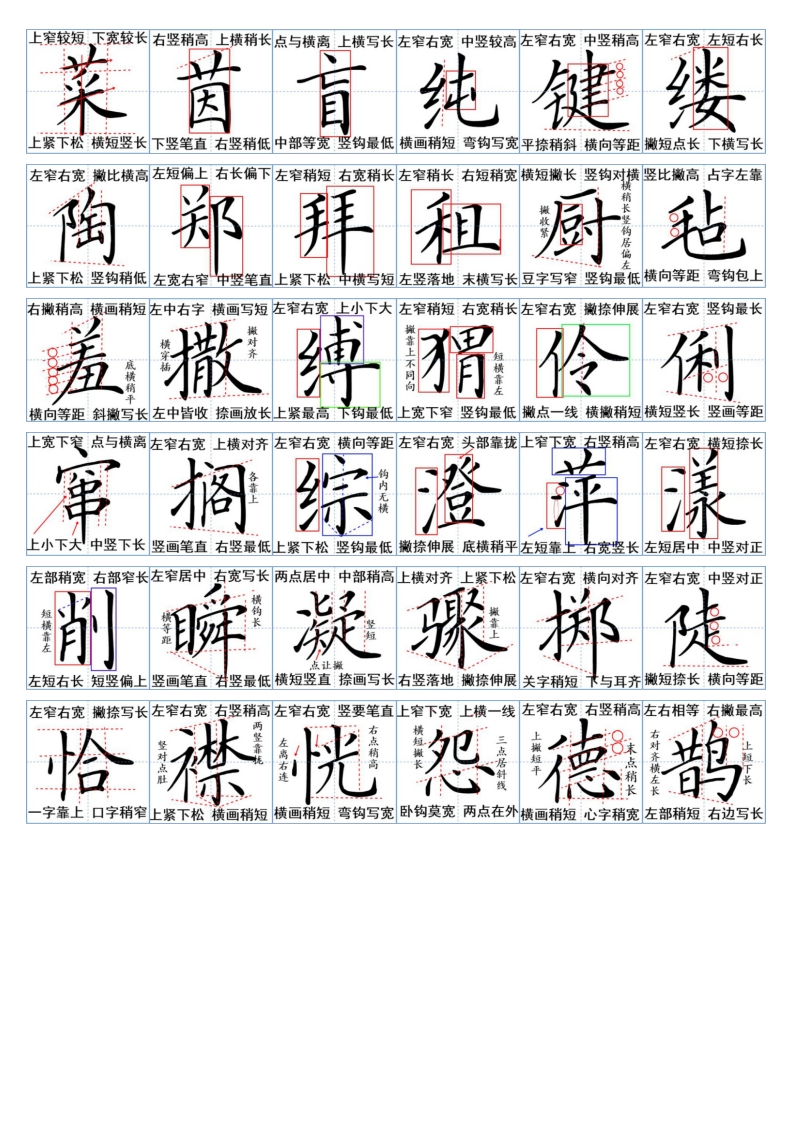 上窄较短 下宽较长
菜
上紧下松 横短竖长
右竖稍高 上横稍长
茵
下竖笔直 右竖稍低
点与横离 上横写长
盲
中部等宽 竖钩最低
左窄右宽 中竖较高
纯
横画稍短 弯钩写宽
左窄右宽 中竖稍高
键
平捺稍斜 横向等距
左窄右宽 左短右长
缕
撇短点长 下横写长
左窄右宽 撇比横高
陶
上紧下松 竖钩稍低
左短偏上 右长偏下
郑
左宽右窄 中竖笔直
左窄稍短 右宽稍长
拜
上紧下松 中横写短
左窄稍长 右短稍宽
租
左竖落地 末横写长
横短撇长 竖钩对横
厨
撇收紧
横稍长竖钩居偏左
豆字写窄 竖钩最低
竖比撇高 占字左靠
毡
横向等距 弯钩包上
右撇稍高 横画稍短
羞
底横稍平
横向等距 斜撇写长
左中右字 横画写短
横穿插
撒
撇对齐
左中皆收 捺画放长
左窄右宽 上小下大
缚
上紧最高 下钩最低
左窄稍短 右宽稍长
撇靠上不同向
猬
短横靠左
上宽下窄 竖钩最低
左窄右宽 撇捺伸展
伶
撇点一线 横撇稍短
左窄右宽 竖钩最长
俐
横短竖长 竖画等距
上宽下窄 点与横离
窜
上小下大 中竖下长
左窄右宽 上横对齐
搁
各靠上
竖画笔直 右竖最低
左窄右宽 横向等距
综
钩内无横
上紧下松 竖钩最低
左窄右宽 头部靠拢
澄
撇捺伸展 底横稍平
上窄下宽 右竖稍高
萍
左短靠上 右宽竖长
左窄右宽 横短捺长
漾
左短居中 中竖对正
左部稍宽 右部窄长
短横靠左
削
左短右长 短竖偏上
左窄居中 右宽写长
横等距
瞬
横钩长
竖画笔直 右竖最低
两点居中 中部稍高
凝
竖短
点让撇
横短竖直 捺画写长
上横对齐 上紧下松
骤
撇靠上
右竖落地 撇捺伸展
左窄右宽 横向对齐
掷
关字稍短 下与耳齐
左窄右宽 中竖对正
陡
撇短捺长 横向等距
左窄右宽 撇捺写长
恰
一字靠上 口字稍窄
左窄右宽 右竖稍高
竖对点肚
襟
两竖靠拢
上紧下松 横画稍短
左窄右宽 竖要笔直
左离右连
恍
右点稍高
横画稍短 弯钩写宽
上窄下宽 上横一线
横短撇长
怨
三点居斜线
卧钩莫宽 两点在外
左窄右宽 右竖稍高
上撇短平
德
末点稍长
横画稍短 心字稍宽
左右相等 右撇最高
右对齐横左长
鹊
上短下长
左部稍短 右边写长